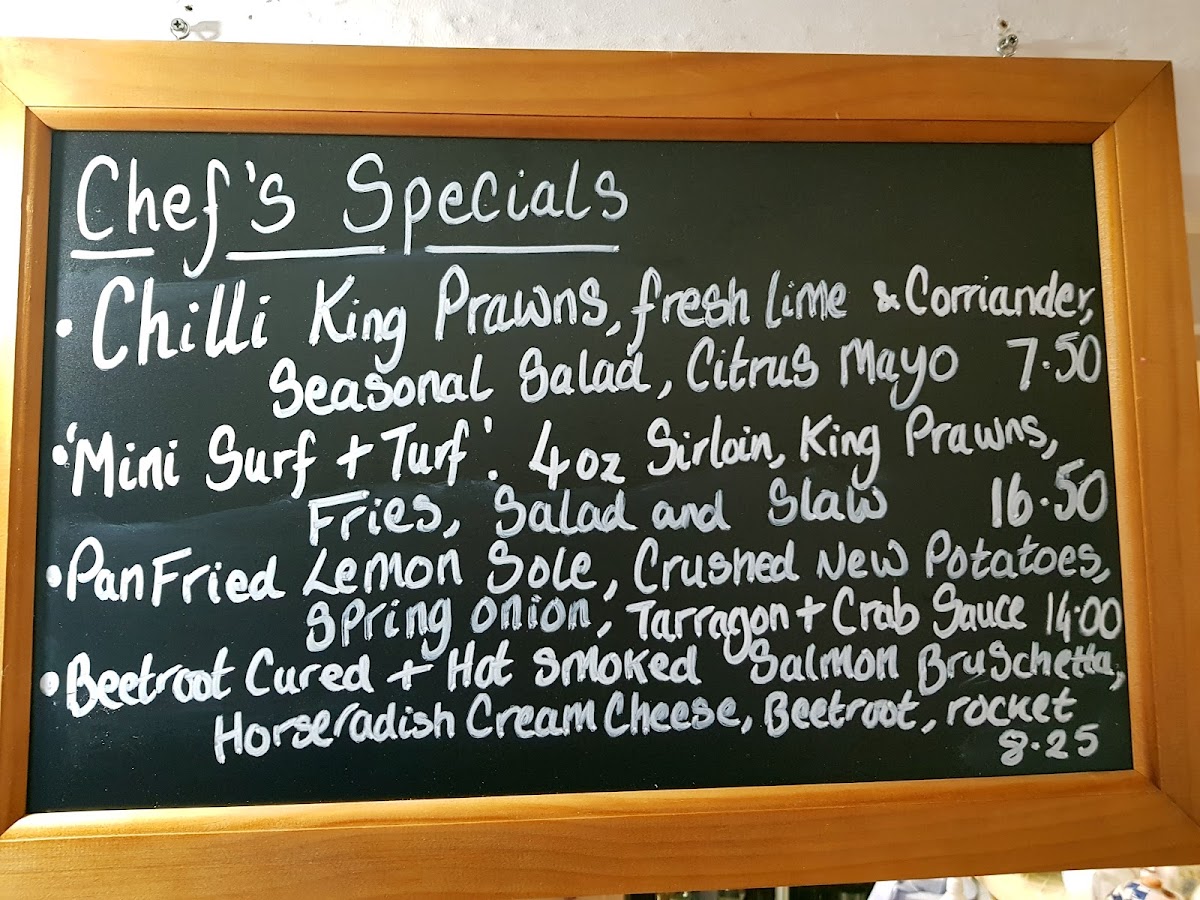 Chef's Specials
• Chilli King Prawns, fresh lime & Corriander,
Seasonal Salad, Citrus Mayo 7.50
• 'Mini Surf + Turf'. 4oz Sirloin, King Prawns,
Fries, Salad and Slaw 16.50
• Pan Fried Lemon Sole, Crushed New Potatoes,
Spring onion, Tarragon + Crab Sauce 14.00
• Beetroot Cured + Hot smoked Salmon Bruschetta,
Horseradish Cream Cheese, Beetroot, rocket
8.25